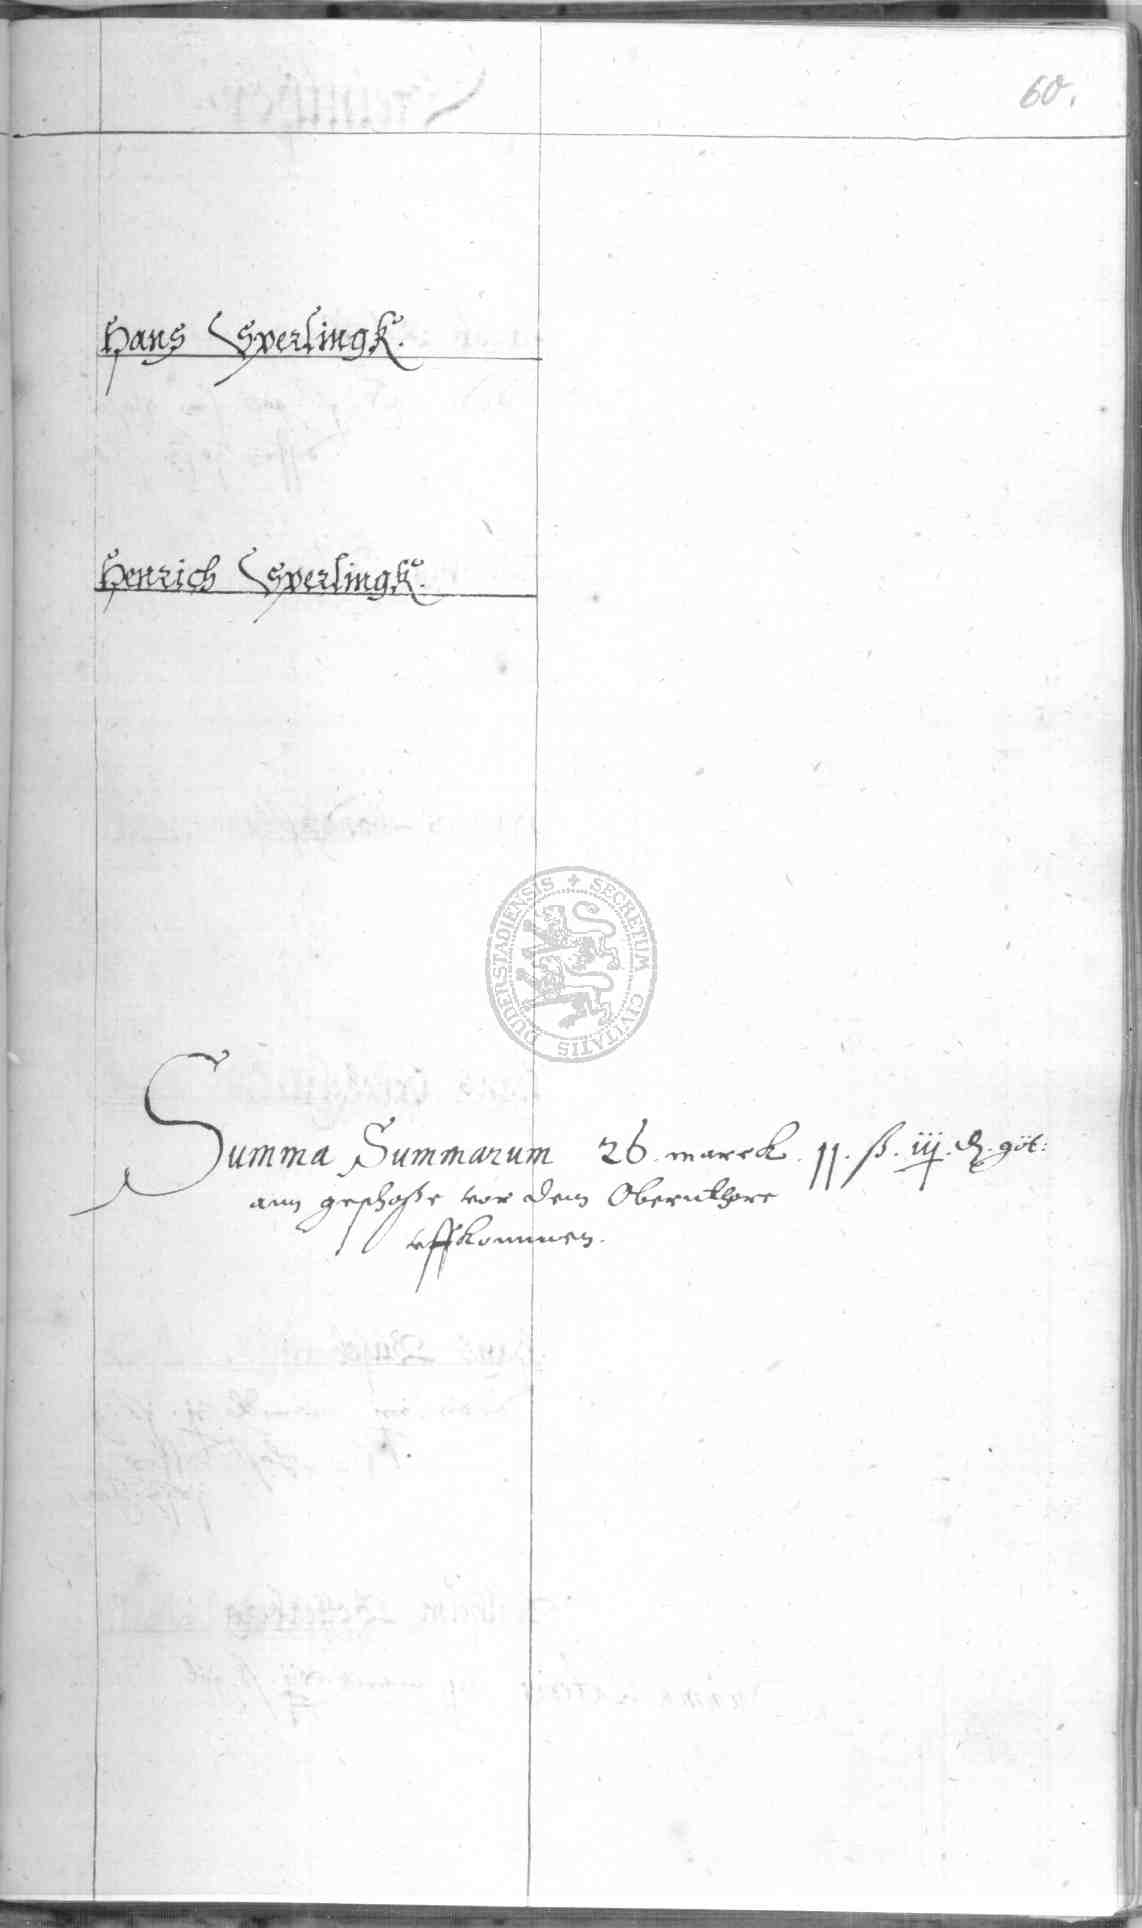 60.
Hans Sperlingk.
Henrich Sperlingk.
SECRETUM CIVITATIS DUDERSTADIENSIS
Summa Summarum 26. marck. 11. ß. iij. ₰. göt:
ann geschosse vor dem Obernthore
uffkommen.